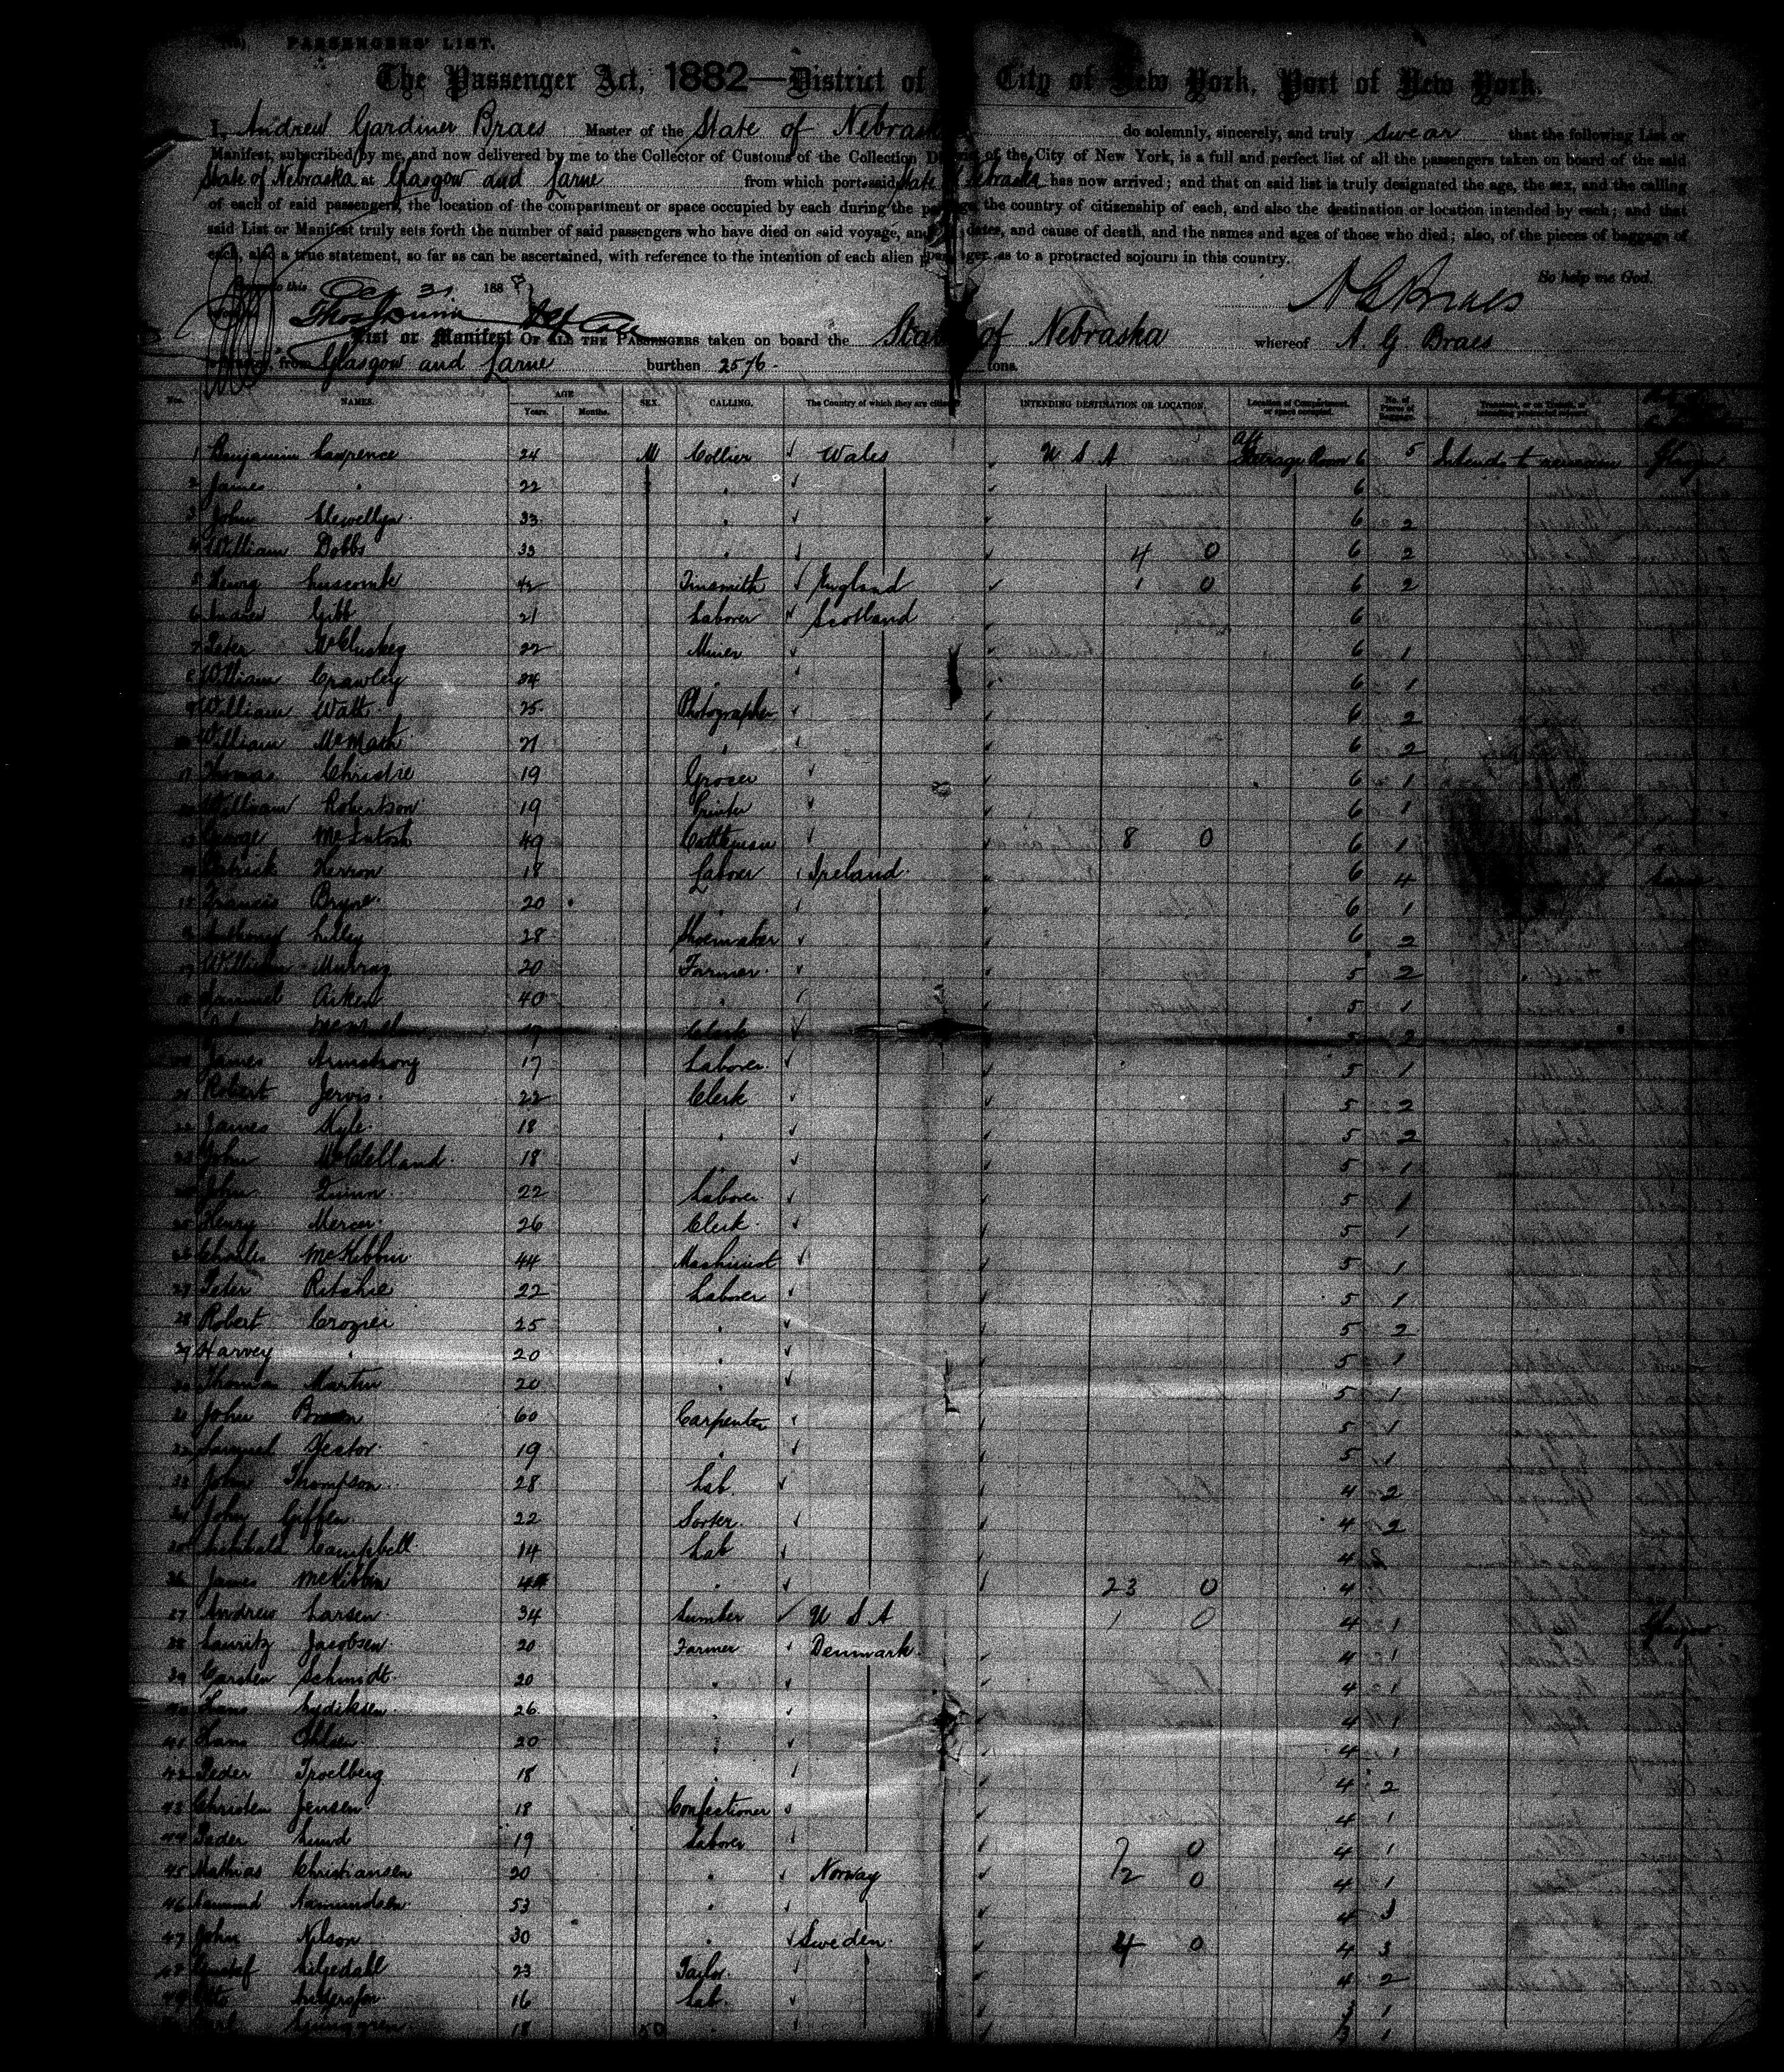 PASSENGERS' LIST.
The Passenger Act, 1882—District of City of New York, Port of New York.
I, Andrew Gardiner Braes Master of the State of Nebraska do solemnly, sincerely, and truly swear that the following List or
Manifest, subscribed by me, and now delivered by me to the Collector of Customs of the Collection District of the City of New York, is a full and perfect list of all the passengers taken on board of the said
State of Nebraska at Glasgow and Larne from which port said State of Nebraska has now arrived; and that on said list is truly designated the age, the sex, and the calling
of each of said passengers, the location of the compartment or space occupied by each during the passage, the country of citizenship of each, and also the destination or location intended by each; and that
said List or Manifest truly sets forth the number of said passengers who have died on said voyage, and dates, and cause of death, and the names and ages of those who died; also, of the pieces of baggage of
each, also a true statement, so far as can be ascertained, with reference to the intention of each alien passenger as to a protracted sojourn in this country.
So help me God.
to this 188 A G Braes
List or Manifest OF ALL THE PASSENGERS taken on board the State of Nebraska whereof A. G. Braes
from Glasgow and Larne burthen 2576 tons.
Nos. NAMES. AGE Years. Months. SEX. CALLING. The Country of which they are citizens INTENDING DESTINATION OR LOCATION. Location of Compartment or space occupied. No. of Pieces of Baggage.
1 Benjamin Lawrence 24 M Collier Wales U S A Aft Steerage Room 6 5 Glasgow
2 James " 22 " 6
3 John Llewellyn 33 " 6 2
4 William Dobbs 33 " 4 0 6 2
5 Henry Luscombe 42 Tinsmith England 1 0 6 2
6 Andrew Gibb 21 Laborer Scotland 6
7 Peter McCluskey 22 Miner 6 1
8 William Crawley 24 " 6 1
9 William Watt 25 Photographer 6 2
10 William McMath 21 " 6 2
11 Thomas Christie 19 Grocer 6 1
12 William Robertson 19 Printer 6 1
13 George McIntosh 49 Cattleman 8 0 6 1
14 Patrick Herron 18 Laborer Ireland 6 4 Larne
15 Francis Bryne 20 " 6 1
16 Anthony Lilley 28 Shoemaker 6 2
17 William Murray 20 Farmer 5 2
18 Samuel Aiken 40 " 5 1
Clerk 5 2
20 James Armstrong 17 Laborer 5 1
21 Robert Jervis 22 Clerk 5 2
22 James Kyle 18 " 5 2
23 John McClelland 18 5 1
24 John Quinn 22 Laborer 5 1
25 Henry Mercer 26 Clerk 5 1
26 Charles McKibbin 44 Machinist 5 1
27 Peter Ritchie 22 Laborer 5 1
28 Robert Crozier 25 " 5 2
29 Harvey " 20 " 5 1
30 Thomas Martin 20 " 5 1
31 John 60 Carpenter 5 1
32 Samuel 19 " 5 1
33 John Thompson 28 Lab. 4 2
34 John Giffen 22 Sorter 4 2
35 Archibald Campbell 14 Lab 4
36 James McKibbin " 23 0 4
37 Andrew Larsen 34 U S A 1 0 4 1 Glasgow
38 Lauritz Jacobsen 20 Farmer Denmark 4 1
39 Carsten Schmidt 20 " 4 1
40 Hans 26 " 4 1
41 Hans 20 " 4 1
42 Peder Troelberg 18 " 4 2
43 Christen Jensen 18 Confectioner 4 1
44 Peder Lund 19 Laborer 7 0 4 1
45 Mathias Christiansen 20 " Norway 2 0 4 1
46 53 " 4 3
47 John Nilson 30 " Sweden 4 0 4 3
48 Gustaf Liljedahl 23 Taylor 4 2
49 Otto 16 Lab. 3 1
18 50 " 3 1